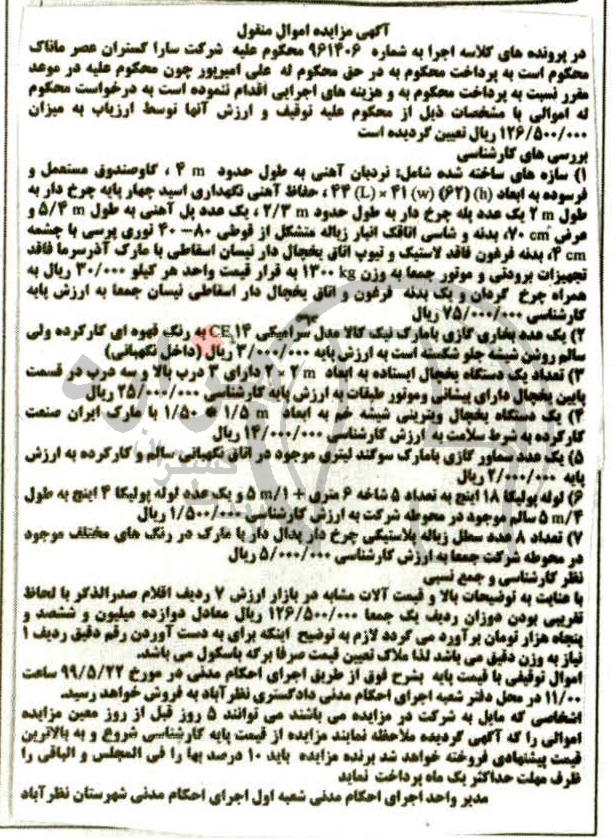 آگهی مزایده اموال منقول
در پرونده های کلاسه اجرا به شماره ۹۶۱۴۰۶ محکوم علیه شرکت سارا گستران عصر ماناک
محکوم است به پرداخت محکوم به در حق محکوم له علی امیرپور چون محکوم علیه در موعد
مقرر نسبت به پرداخت محکوم به و هزینه های اجرایی اقدام ننموده است به درخواست محکوم
له اموالی با مشخصات ذیل از محکوم علیه توقیف و ارزش آنها توسط ارزیاب به میزان
۱۲۶/۵۰۰/۰۰۰ ریال تعیین گردیده است
بررسی های کارشناسی
۱) سازه های ساخته شده شامل: نردبان آهنی به طول حدود ۴ m ، گاوصندوق مستعمل و
فرسوده به ابعاد (h) (۶۲) (w) ۴۱ × (L) ۴۴ ، حفاظ آهنی نگهداری اسید چهار پایه چرخ دار به
طول ۲ m یک عدد پله چرخ دار به طول حدود ۲/۳ m ، یک عدد پل آهنی به طول ۵/۴ m و
عرض ۷۰ cm، بدنه و شاسی اتاقک انبار زباله متشکل از قوطی ۸۰–۴۰ توری پرسی با چشمه
۴ cm، بدنه فرغون فاقد لاستیک و تیوپ اتاق یخچال دار نیسان اسقاطی با مارک آذرسرما فاقد
تجهیزات برودتی و موتور جمعا به وزن ۱۳۰۰ kg به قرار قیمت واحد هر کیلو ۳۰/۰۰۰ ریال به
همراه چرخ گردان و یک بدنه فرغون و اتاق یخچال دار اسقاطی نیسان جمعا به ارزش پایه
کارشناسی ۷۵/۰۰۰/۰۰۰ ریال
۲) یک عدد بخاری گازی بامارک نیک کالا مدل سرامیکی CE ۱۴ به رنگ قهوه ای کارکرده ولی
سالم روشن شیشه جلو شکسته است به ارزش پایه ۳/۰۰۰/۰۰۰ ریال (داخل نگهبانی)
۳) تعداد یک دستگاه یخچال ایستاده به ابعاد ۲ × ۲ m دارای ۳ درب بالا و سه درب در قسمت
پایین یخچال دارای پیشانی وموتور طبقات به ارزش پایه کارشناسی ۲۵/۰۰۰/۰۰۰ ریال
۴) یک دستگاه یخچال ویترینی شیشه خم به ابعاد ۱/۵ m * ۱/۵۰ با مارک ایران صنعت
کارکرده به شرط سلامت به ارزش کارشناسی ۱۴/۰۰۰/۰۰۰ ریال
۵) یک عدد سماور گازی بامارک سوگند لیتری موجود در اتاق نگهبانی سالم و کارکرده به ارزش
پایه ۲/۰۰۰/۰۰۰ ریال
۶) لوله پولیکا ۱۸ اینچ به تعداد ۵ شاخه ۶ متری + ۵ m/۱ و یک عدد لوله پولیکا ۴ اینچ به طول
۵ m/۴ سالم موجود در محوطه شرکت به ارزش کارشناسی ۱/۵۰۰/۰۰۰ ریال
۷) تعداد ۸ عدد سطل زباله پلاستیکی چرخ دار پدال دار با مارک در رنگ های مختلف موجود
در محوطه شرکت جمعا به ارزش کارشناسی ۵/۰۰۰/۰۰۰ ریال
نظر کارشناسی و جمع نسبی
با عنایت به توضیحات بالا و قیمت آلات مشابه در بازار ارزش ۷ ردیف اقلام صدرالذکر با لحاظ
تقریبی بودن دوزان ردیف یک جمعا ۱۲۶/۵۰۰/۰۰۰ ریال معادل دوازده میلیون و ششصد و
پنجاه هزار تومان برآورد می گردد لازم به توضیح اینکه برای به دست آوردن رقم دقیق ردیف ۱
نیاز به وزن دقیق می باشد لذا ملاک تعیین قیمت صرفا برگه باسکول می باشد.
اموال توقیفی با قیمت پایه بشرح فوق از طریق اجرای احکام مدنی در مورخ ۹۹/۵/۲۲ ساعت
۱۱/۰۰ در محل دفتر شعبه اجرای احکام مدنی دادگستری نظرآباد به فروش خواهد رسید.
اشخاصی که مایل به شرکت در مزایده می باشند می توانند ۵ روز قبل از روز معین مزایده
اموالی را که آگهی گردیده ملاحظه نمایند مزایده از قیمت پایه کارشناسی شروع و به بالاترین
قیمت پیشنهادی فروخته خواهد شد برنده مزایده باید ۱۰ درصد بها را فی المجلس و الباقی را
ظرف مهلت حداکثر یک ماه پرداخت نماید
مدیر واحد اجرای احکام مدنی شعبه اول اجرای احکام مدنی شهرستان نظرآباد